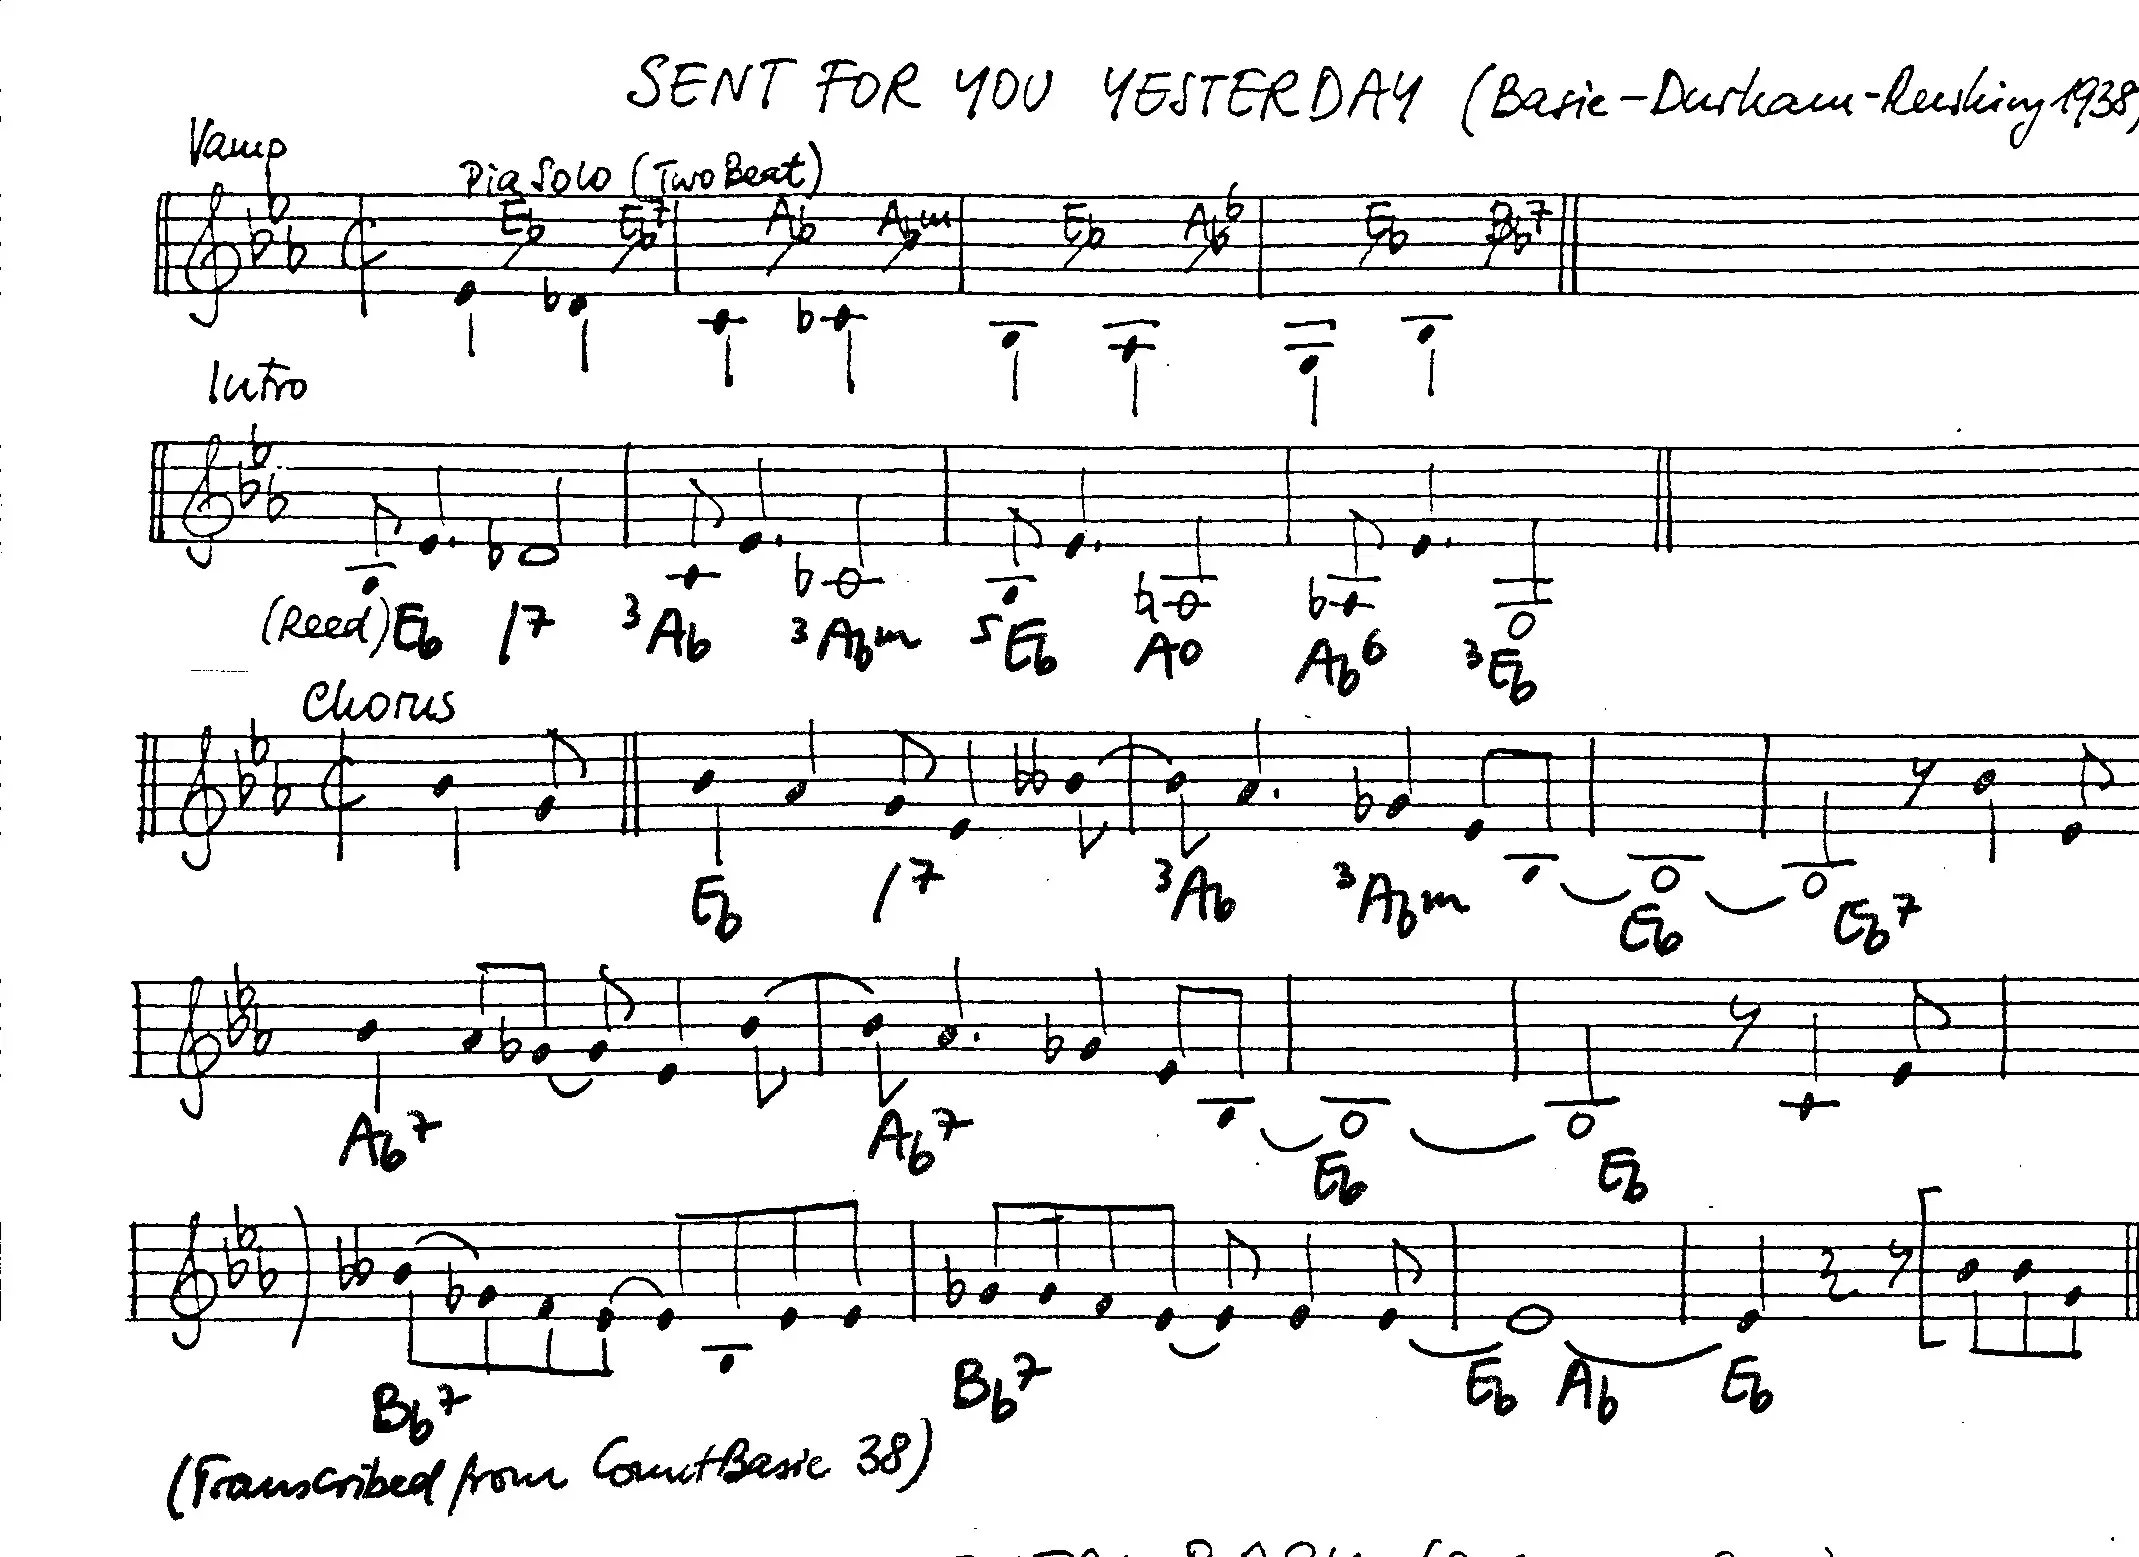 SENT FOR YOU YESTERDAY (Basie-Durham-Rushing 1938)
Vamp
Pia Solo (Two Beat)
Eb Eb7 Ab Abm Eb Ab6 Eb Bb7
Intro
(Reed) Eb /7 3Ab 3Abm 5Eb Ao Ab6 3Eb
Chorus
Eb /7 3Ab 3Abm Eb Eb7
Ab7 Ab7 Eb Eb
Bb7 Bb7 Eb Ab Eb
(Transcribed from Count Basie 38)